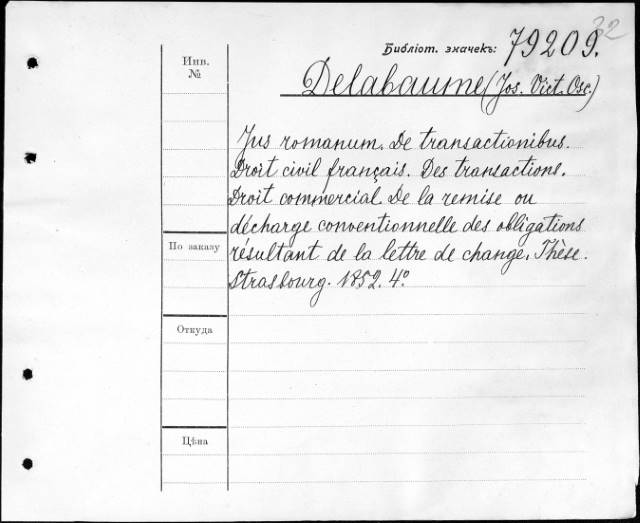 32
Библіот. значекъ: 79209.
Инв.
№
Delabaume (Jos. Vict. Osc.)
Jus romanum. De transactionibus.
Droit civil français. Des transactions.
Droit commercial. De la remise ou
décharge conventionnelle des obligations
résultant de la lettre de change. Thèse.
Strasbourg. 1852. 4°.
По заказу
Откуда
Цѣна